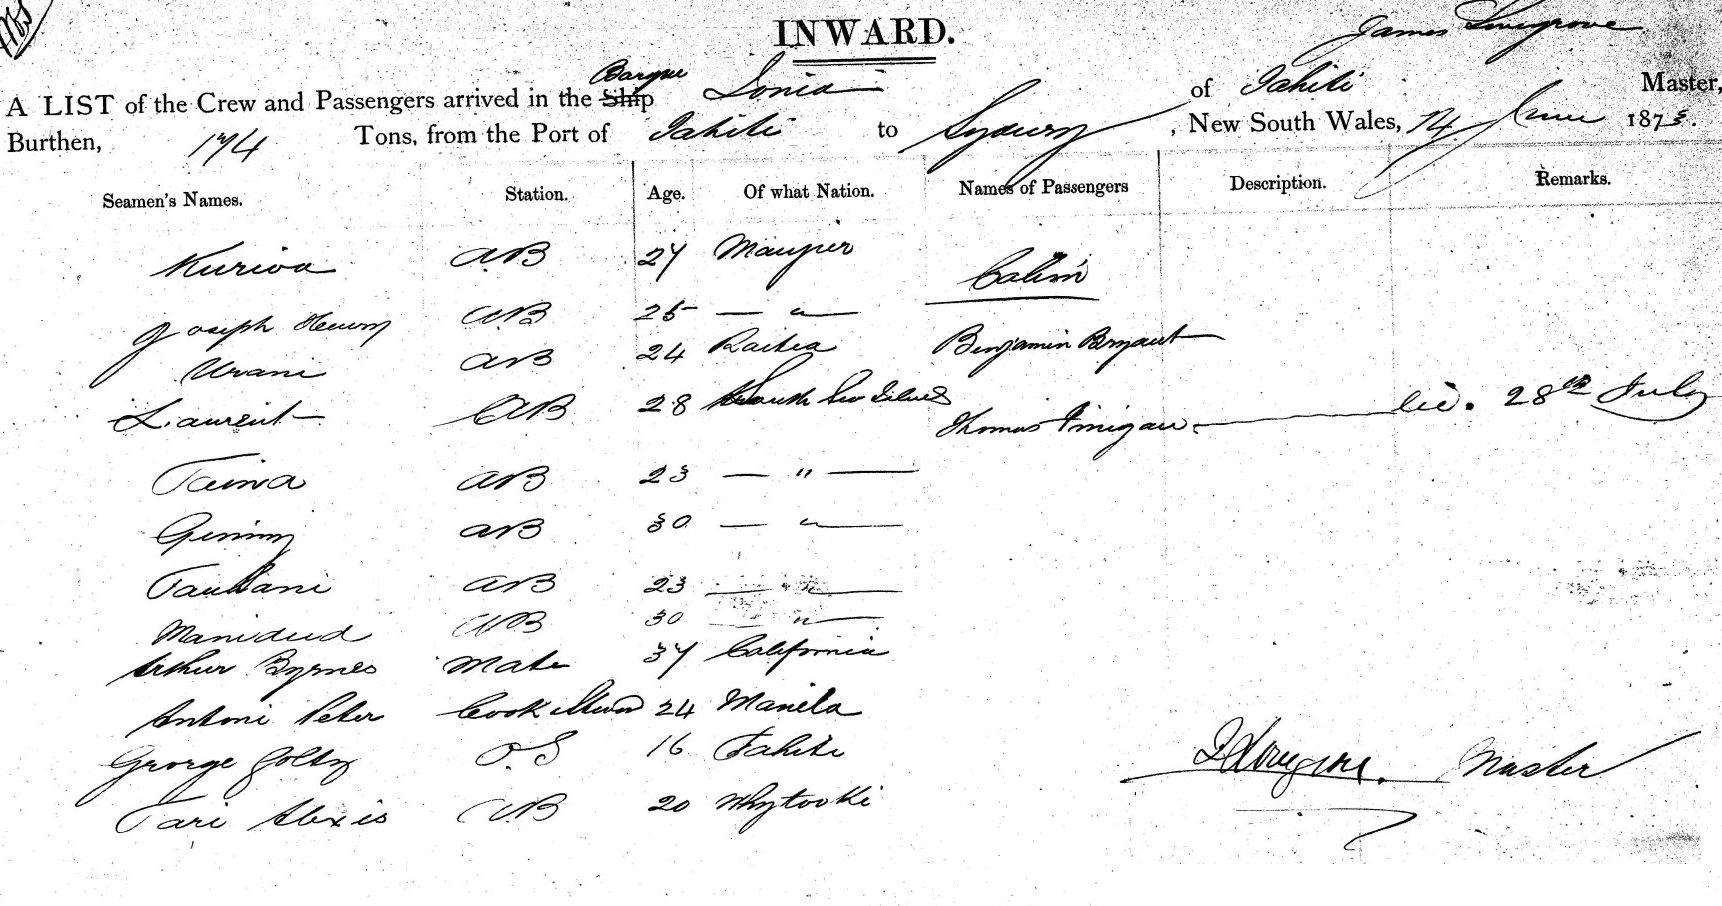 INWARD.
James
A LIST of the Crew and Passengers arrived in the Ship Barque Sonia of Tahiti Master,
Burthen, 174 Tons, from the Port of Tahiti to Sydney, New South Wales, 14 June 1873.
Seamen's Names. Station. Age. Of what Nation. Names of Passengers Description. Remarks.
AB 27
Cabin
Joseph Henry AB 25 — " —
Urani AB 24 Raitea Benjamin Bryant
Laurent AB 28 South Sea
Thomas Finigan. 28th July
AB 23 — " —
Gimmy AB 30 — " —
AB 23 — " —
AB 30 — " —
Arthur Byrnes Mate 37 California
Antoni Peter Cook 24 Manila
George OS 16 Tahiti
Master
Tari Alexis AB 20 Whytooki